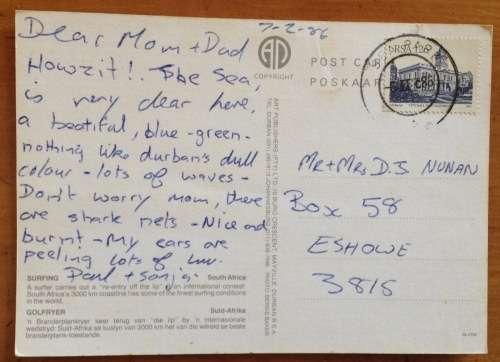 7-2-86
Dear Mom + Dad
Howzit!. The Sea,
is very clear here,
a beatiful, blue-green-
nothing like durban's dull
colour - lots of waves -
Don't worry mom, there
are shark nets - Nice and
burnt - My ears are
peeling lots of luv.
Paul + Sonja
SURFING South Africa
A surfer carries out a "re-entry off the lip" in an international contest.
South Africa's 3000 km coastline has some of the finest surfing conditions
in the world.
GOLFRYER Suid-Afrika
'n Branderplankryer keer terug van "die lip" by 'n internasionale
wedstryd. Suid-Afrika se kuslyn van 3000 km het van die wêreld se beste
branderplankry-toestande.
COPYRIGHT
POST CARD
POSKAART
ART PUBLISHERS (PTY) LTD
RSA 12c
Mr + Mrs D.J NUNAN
Box 58
ESHOWE
3815